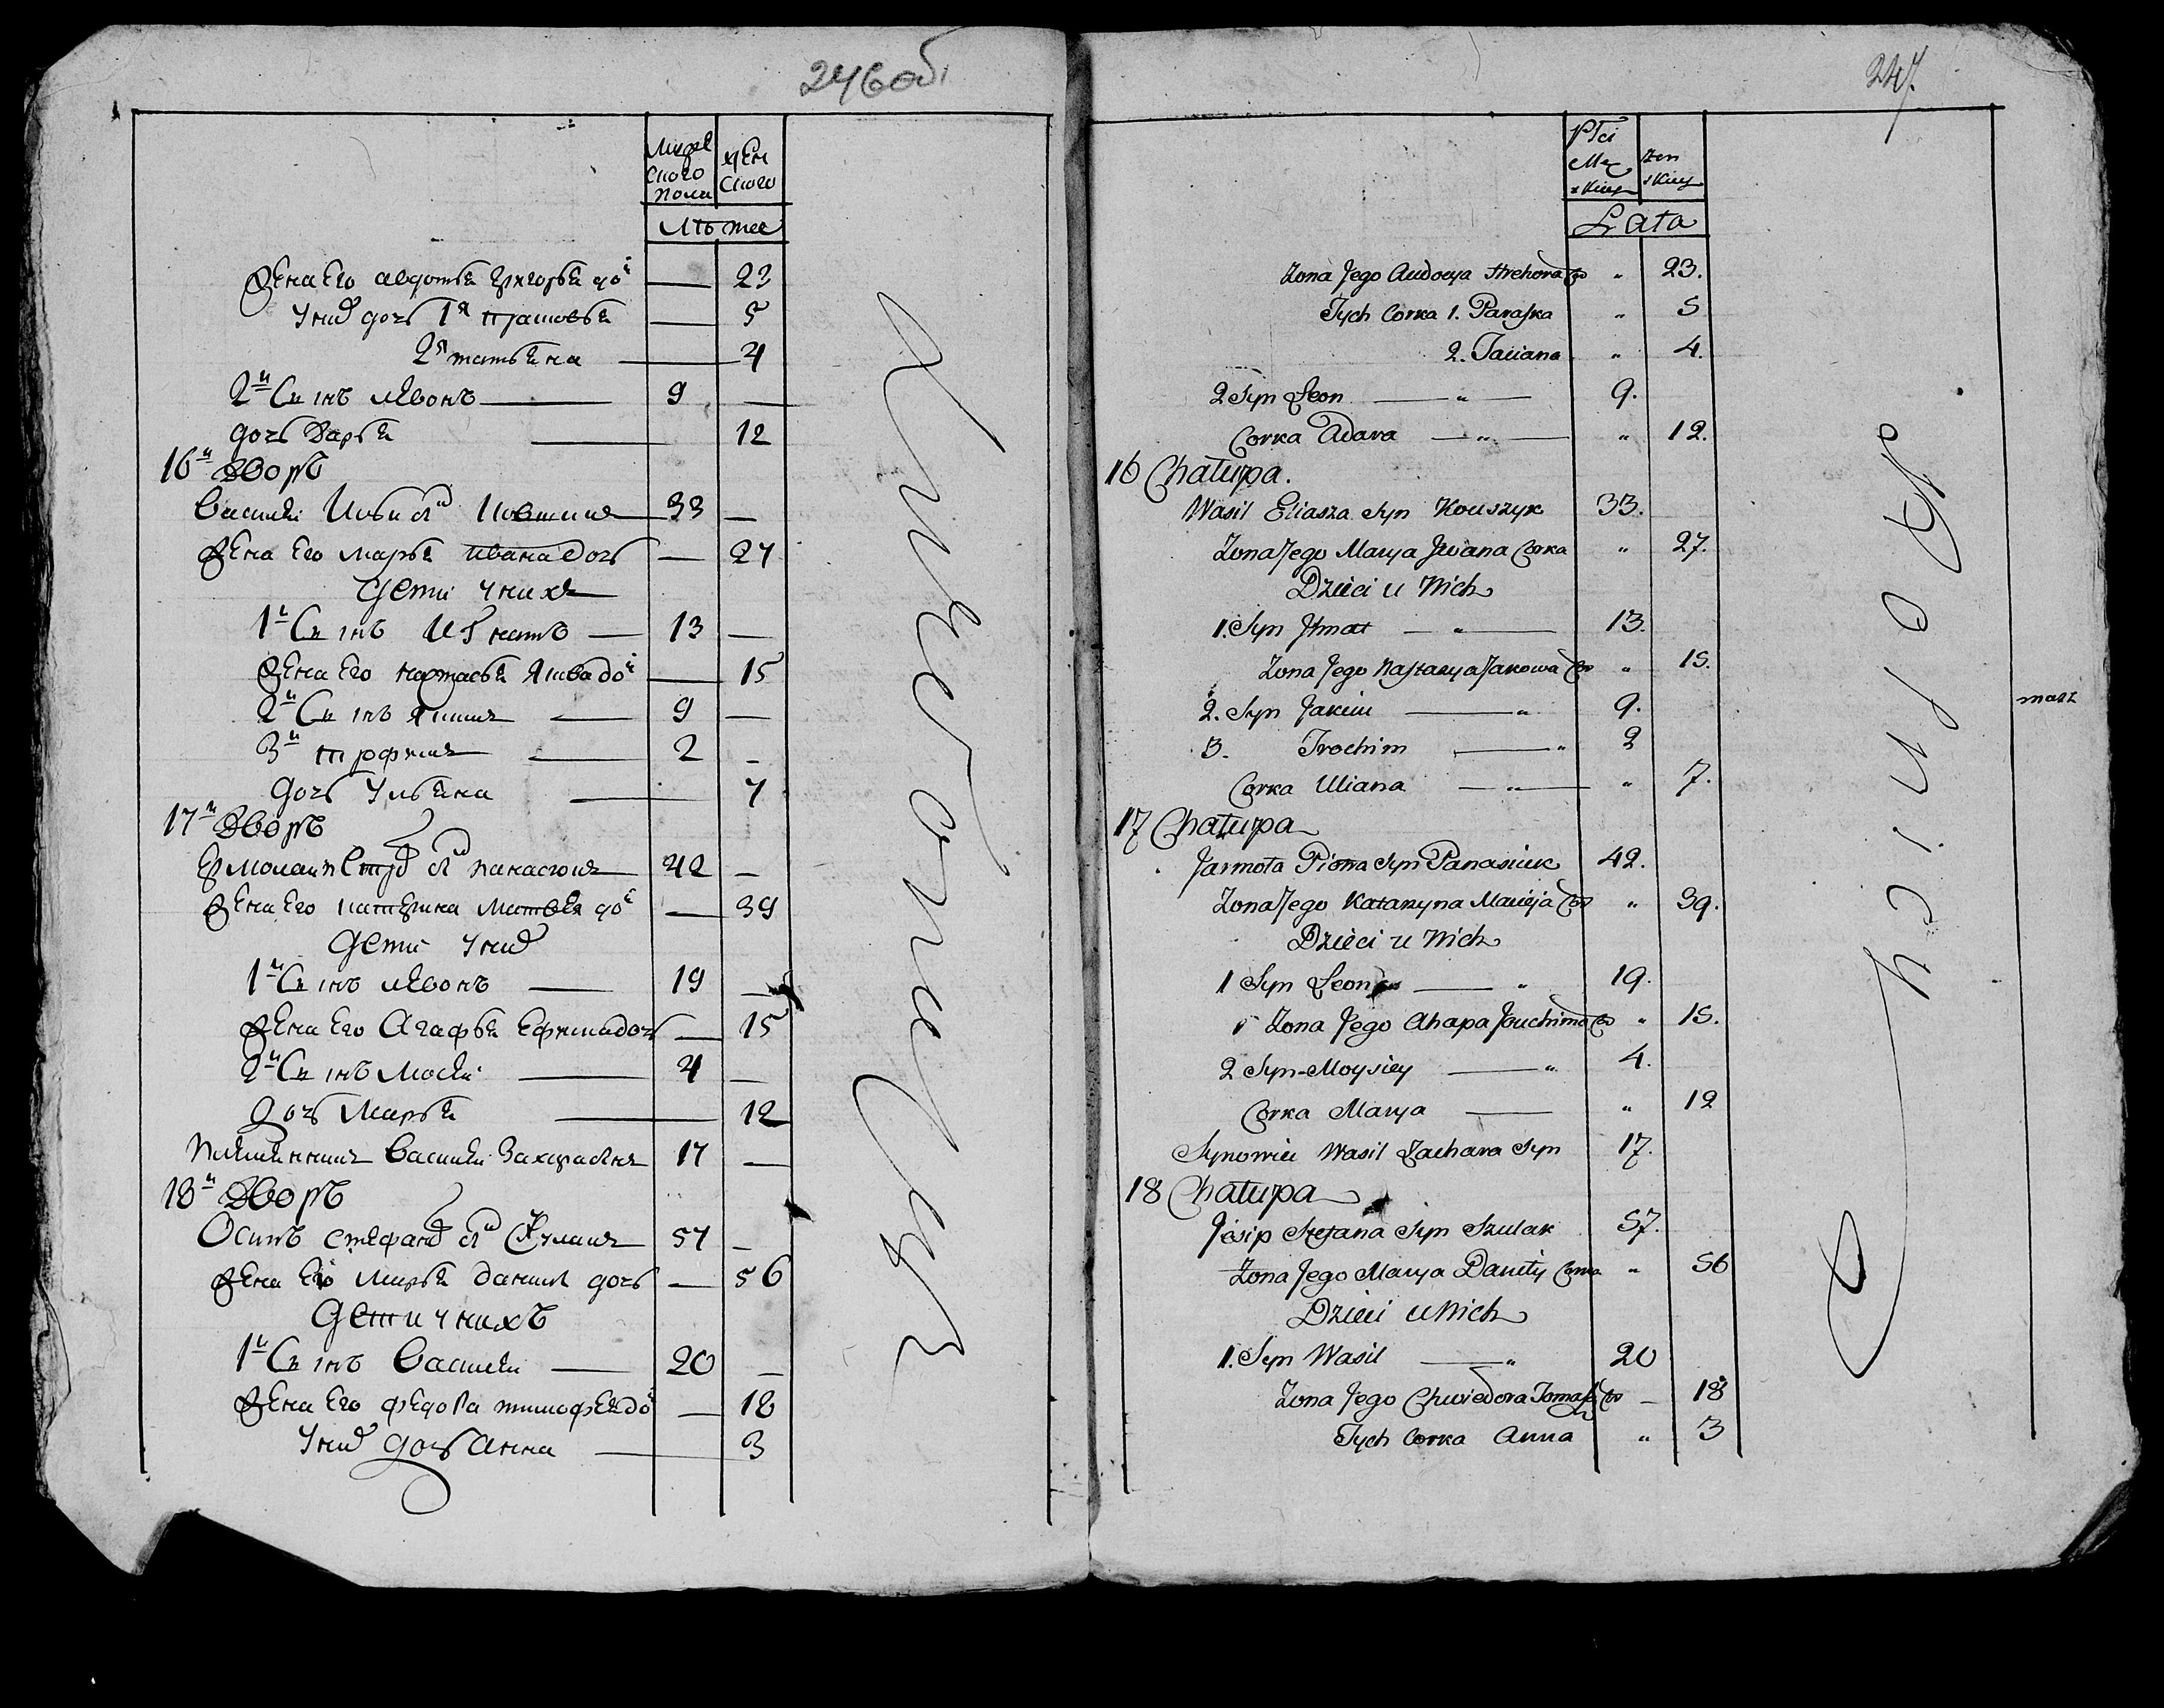 246об
Мужескаго пола
Женскаго
Лѣта
Жена Его авдотья григорья до
У них дочь 1я прасковья 5
2я татьяна 4
2й Сынъ Левонъ 9
дочь Дарья 12
16й Дворъ
Василей Ильи сын 33
Жена Его марья ивана дочь 27
Дети у них
1й Сынъ Игнатъ 13
Жена Его настасья якова до 15
2й Сынъ якимъ 9
3й трофимъ 2
Дочь Ульяна 7
17й Дворъ
Ермолай панасюкъ 42
Жена Его катерина матвея до 39
Дети у них
1й Сынъ Левонъ 19
Жена Его Агафья Ефима дочь 15
2й Сынъ Мосей 4
дочь Марья 12
племянникъ Василей 17
18й Дворъ
Осипъ стефана сын 57
Жена Его Марья данила дочь 56
Дети у нихъ
1й Сынъ Василей 20
Жена Его федора тимофея до 18
У них дочь Анна 3
247.
Płci Męzkiey
Żenskiey
Lata
Zona Jego Audocya Hrehora Cor " 23.
Tych Corka 1. Paraska " 5
2. Taciana " 4.
2 Syn Leon " 9.
Corka Adara " " 12.
16 Chałupa.
Wasil Eliasza Syn Kouszyk 33.
Zona Jego Marya Jwana Corka " 27.
Dzieci u Nich
1. Syn Jhnat " 13.
Zona Jego Nastazya Jakowa Cor " 15.
2. Syn Jakim " 9.
3. Trochim " 2
Corka Uliana " " 7.
17 Chałupa
Jarmoła Piotra Syn Panasiuk 42.
Zona Jego Katarzyna Macieja Cor " 39.
Dzieci u Nich
1 Syn Leon " 19.
Zona Jego Ahapa Jouchima Cor " 15.
2 Syn Moysiey " 4.
Corka Marya " 12
Synowiec Wasil Zachara Syn 17.
18 Chałupa
Josip Stefana Syn Szulak 57.
Zona Jego Marya Daniły Corka " 56
Dzieci u Nich
1. Syn Wasil " 20
Zona Jego Chwiedora Tomasza Cor – 18
Tych Corka Anna " 3